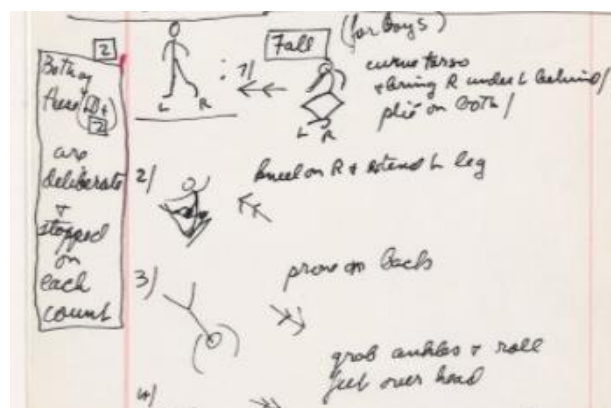 2
Both of
these (1 +
2)
are
deliberate
+
stopped
on
each
count
Fall (for boys)
: 1/
L R
curve torso
+ bring R under L behind/
plié on both/
L R
2/ kneel on R + extend L leg
3/ prone on back
grab ankles + roll
feet over head
4/